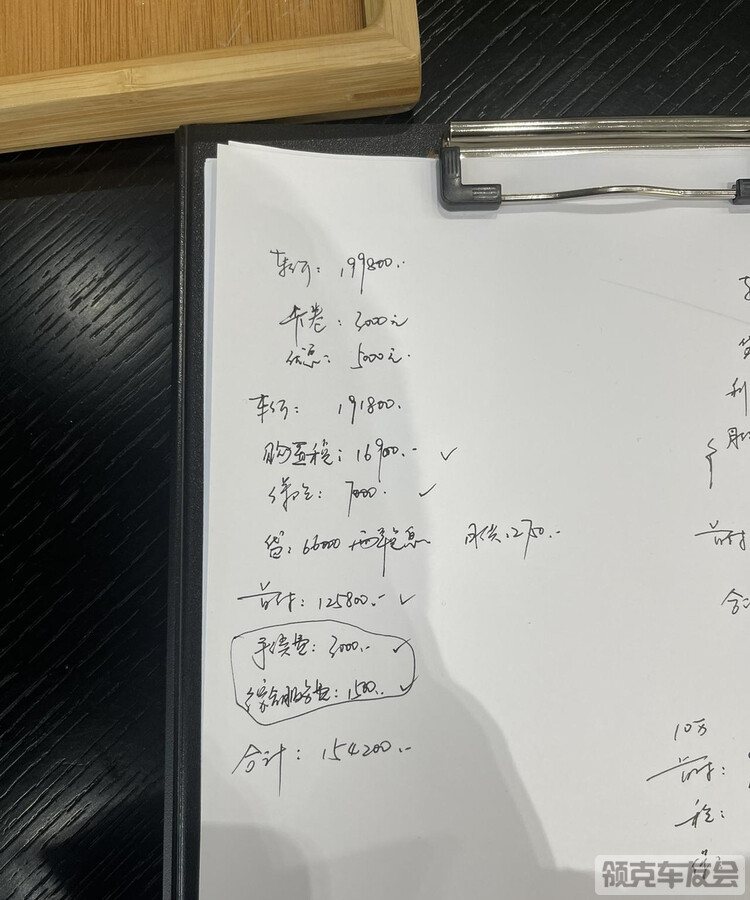 车价：199800.-
卡卷：3000元
优惠：5000元.
车价：191800.
购置税：16900.- ✓
保险：7000. ✓
贷：66000 两年免息 月供：2750.-
首付：125800.- ✓
手续费：3000.- ✓
综合服务费：1500. ✓
合计：154200.-
利
首付
合计
10万
首付：
税：
保：
领克车友会